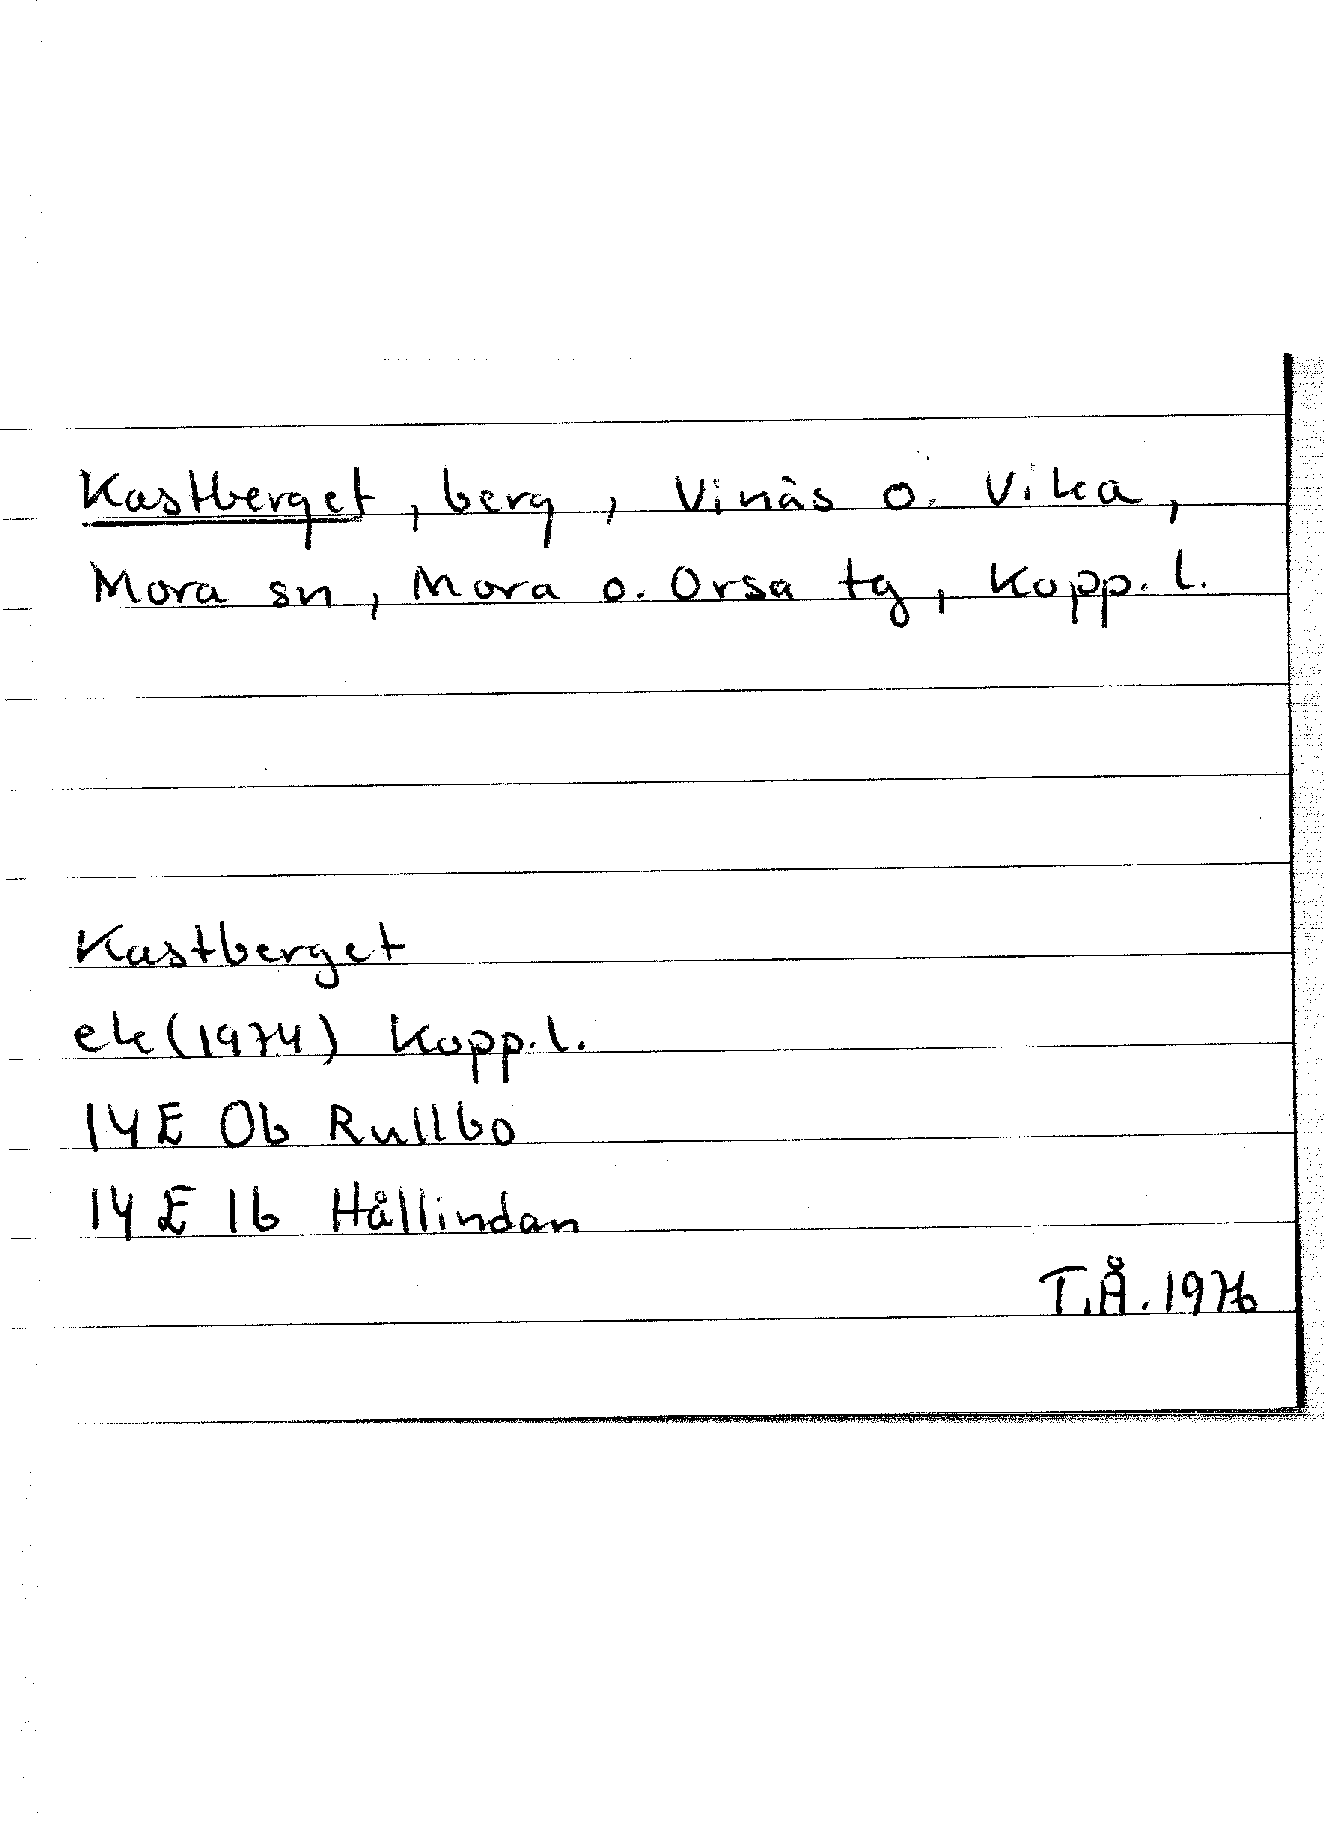 Kastberget, berg, Vinäs o. Vika,
Mora sn, Mora o. Orsa tg, Kopp. l.
Kastberget
ek (1974) Kopp. l.
14 E 0b Rullbo
14 E 1b Hållindan
T.Å. 1976